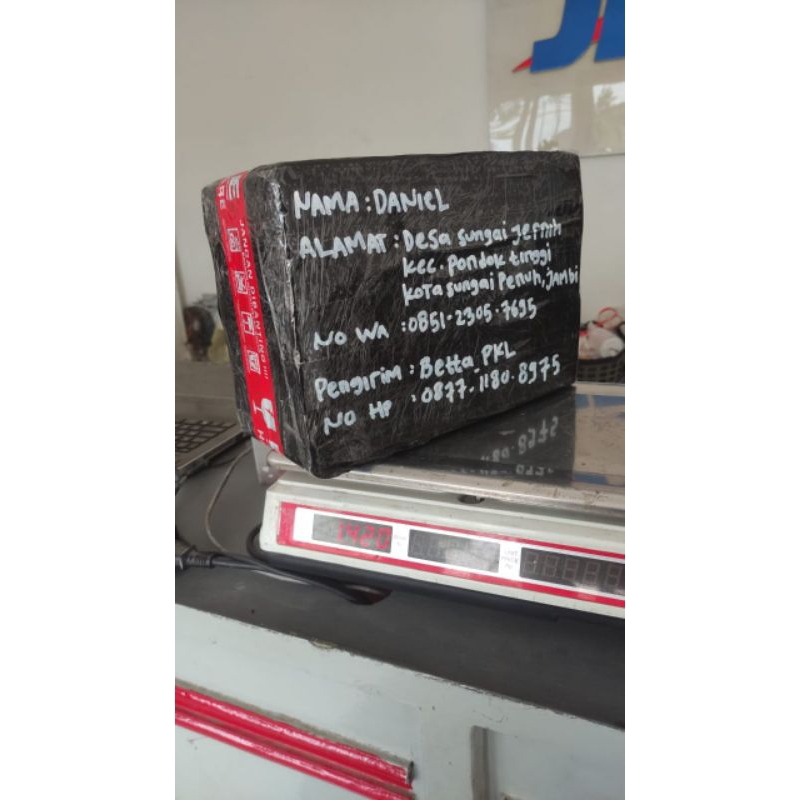 NAMA : DANIEL
ALAMAT : Desa sungai Jernih
kec. Pondok tinggi
KOTA sungai Penuh, JAMBI
NO WA : 0851-2305-7695
Pengirim : Betta PKL
NO HP : 0877-1180-8975
JANGAN DIBANTING !!!
1420